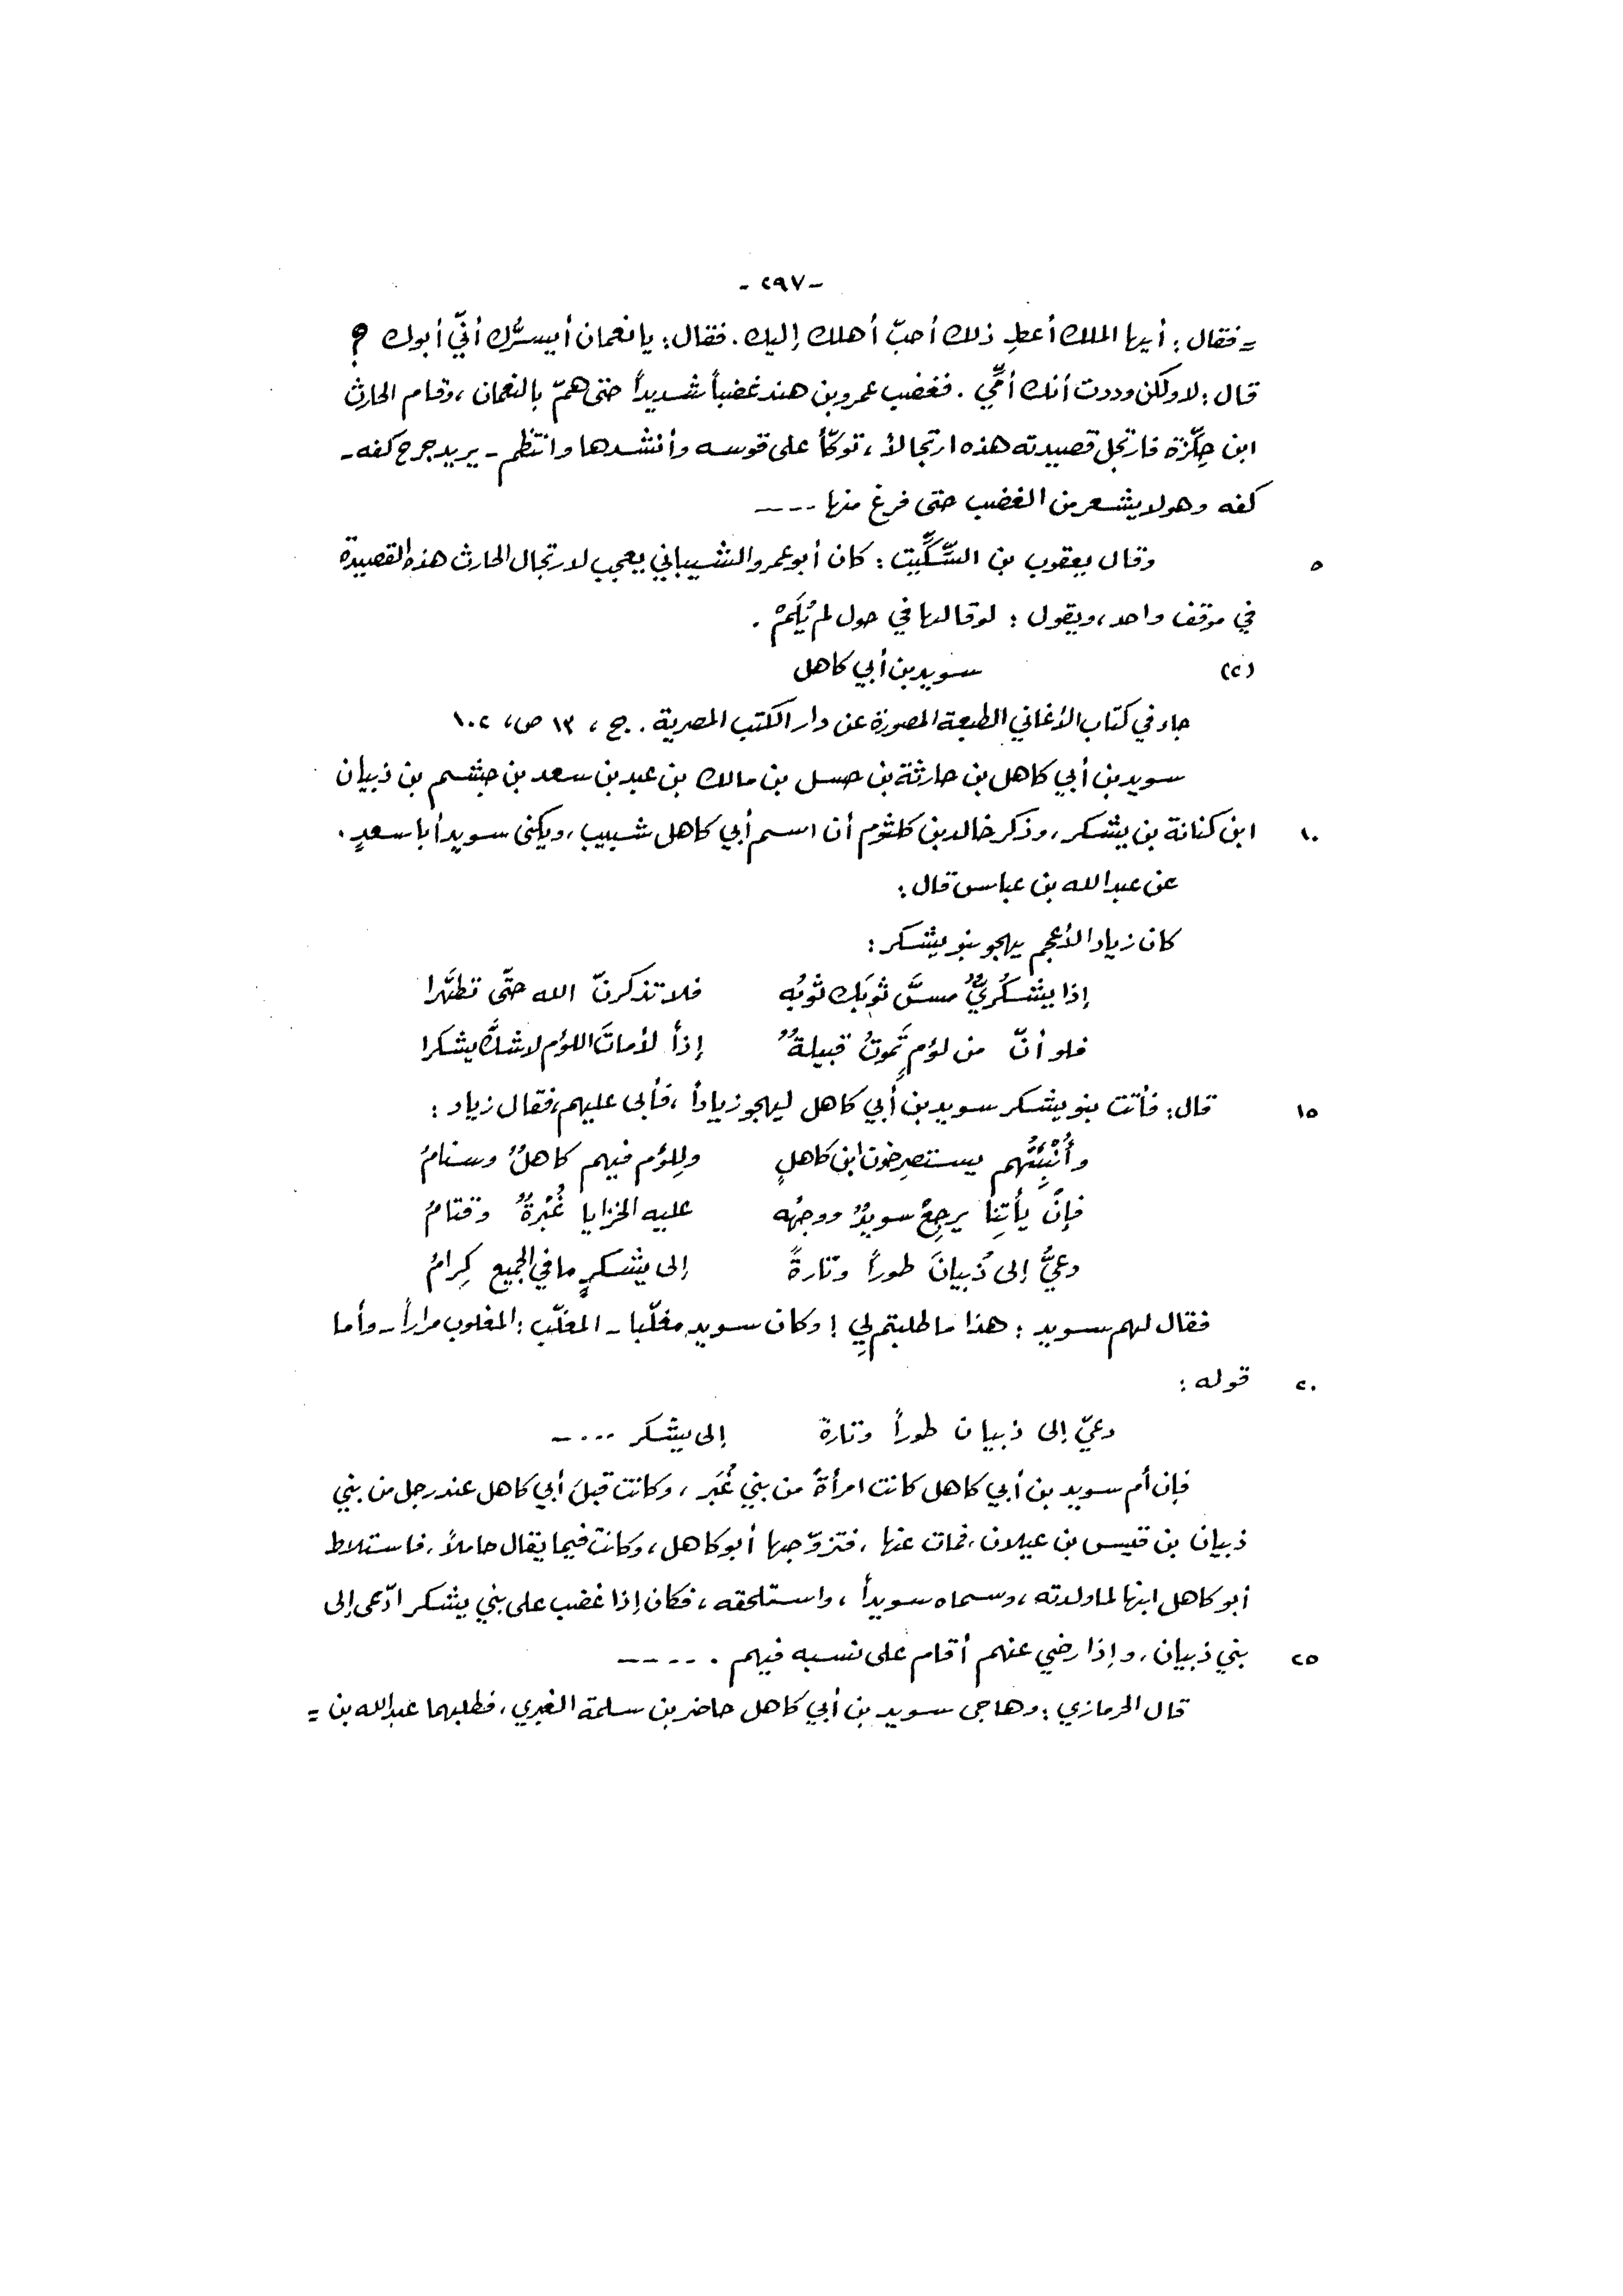 - ٢٩٧ -
= فقال : أيها الملك أعطِ ذلك أحبّ أهلك إليك . فقال : يا نعمان أيسرُّك أنّي أبوك ؟
قال : لا ولكن وددت أنك أمّي . فغضب عمرو بن هند غضباً شديداً حتى همّ بالنعمان ، وقام الحارث
ابن حِلّزة فارتجل قصيدته هذه ارتجالاً ، توكّأ على قوسه وأنشدها وانتظم - يريد جرح كفه -
كفه وهو لا يشعر من الغضب حتى فرغ منها ----
٥ وقال يعقوب بن السِّكِّيت : كان أبو عمرو الشيباني يعجب لارتجال الحارث هذه القصيدة
في موقف واحد ، ويقول : لو قالها في حول لم يُلَمْ .
(٢) سويد بن أبي كاهل
جاء في كتاب الأغاني الطبعة المصورة عن دار الكتب المصرية . ج ، ١٣ ص، ١٠٢
سويد بن أبي كاهل بن حارثة بن حسل بن مالك بن عبد بن سعد بن جشم بن ذبيان
١٠ ابن كنانة بن يشكر ، وذكر خالد بن كلثوم أن اسم أبي كاهل شبيب ، ويكنى سويد أبا سعدٍ .
عن عبد الله بن عباس قال :
كان زياد الأعجم يهجو بنو يشكر :
إذا يشكُريٌّ مسَّ ثوبَك ثوبُه فلا تذكرنّ الله حتّى تطهَّرا
فلو أنّ من لؤمٍ تَموتُ قبيلةٌ إذاً لأماتَ اللؤم لا شكَّ يشكرا
١٥ قال : فأتت بنو يشكر سويد بن أبي كاهل ليهجو زياداً ، فأبى عليهم ، فقال زياد :
وأُنْبِئْتُهم يستصرِخون ابن كاهلٍ ولِلؤم فيهم كاهلٌ وسنامُ
فإنْ يأتِنا يرجِعْ سويدٌ ووجهُه عليه الخزايا غُبْرةٌ وقتامُ
دعيٌّ إلى ذُبيانَ طوراً وتارةً إلى يشكرٍ ما في الجميع كِرامُ
فقال لهم سويد : هذا ما طلبتم لي ! وكان سويد مغلّبا - المغلّب : المغلوب مراراً - وأما
٢٠ قوله :
دعيّ إلى ذبيان طوراً وتارة إلى يشكر ----
فإن أم سويد بن أبي كاهل كانت امرأةً من بني غُبَر ، وكانت قبلَ أبي كاهل عند رجل من بني
ذبيان بن قيس بن عيلان ، فمات عنها ، فتزوّجها أبو كاهل ، وكانت فيما يقال حاملاً ، فاستلاط
أبو كاهل ابنها لما ولدته ، وسماه سويداً ، واستلحقه ، فكان إذا غضب على بني يشكر ادّعى إلى
٢٥ بني ذبيان ، وإذا رضي عنهم أقام على نسبه فيهم . ----
قال الحرمازي : وهاجى سويد بن أبي كاهل حاضر بن سلمة الغبري ، فطلبهما عبد الله بن =